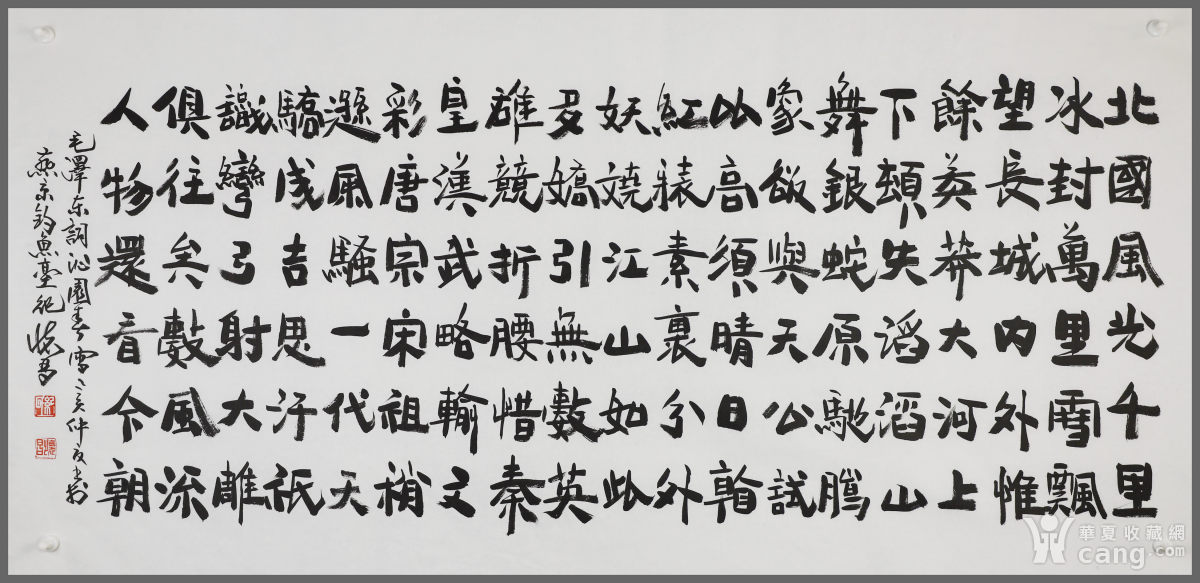 北國風光千里
冰封萬里雪飄
望長城内外惟
餘莽莽大河上
下頓失滔滔山
舞銀蛇原馳臘
象欲與天公試
比高須晴日看
紅裝素裹分外
妖嬈江山如此
多嬌引無數英
雄競折腰惜秦
皇漢武略輸文
彩唐宗宋祖稍
遜風騷一代天
驕成吉思汗祇
識彎弓射大雕
俱往矣數風流
人物還看今朝
毛澤东詞沁園春雪己亥仲夏书於
燕京釣魚臺
華夏收藏網
cang.com